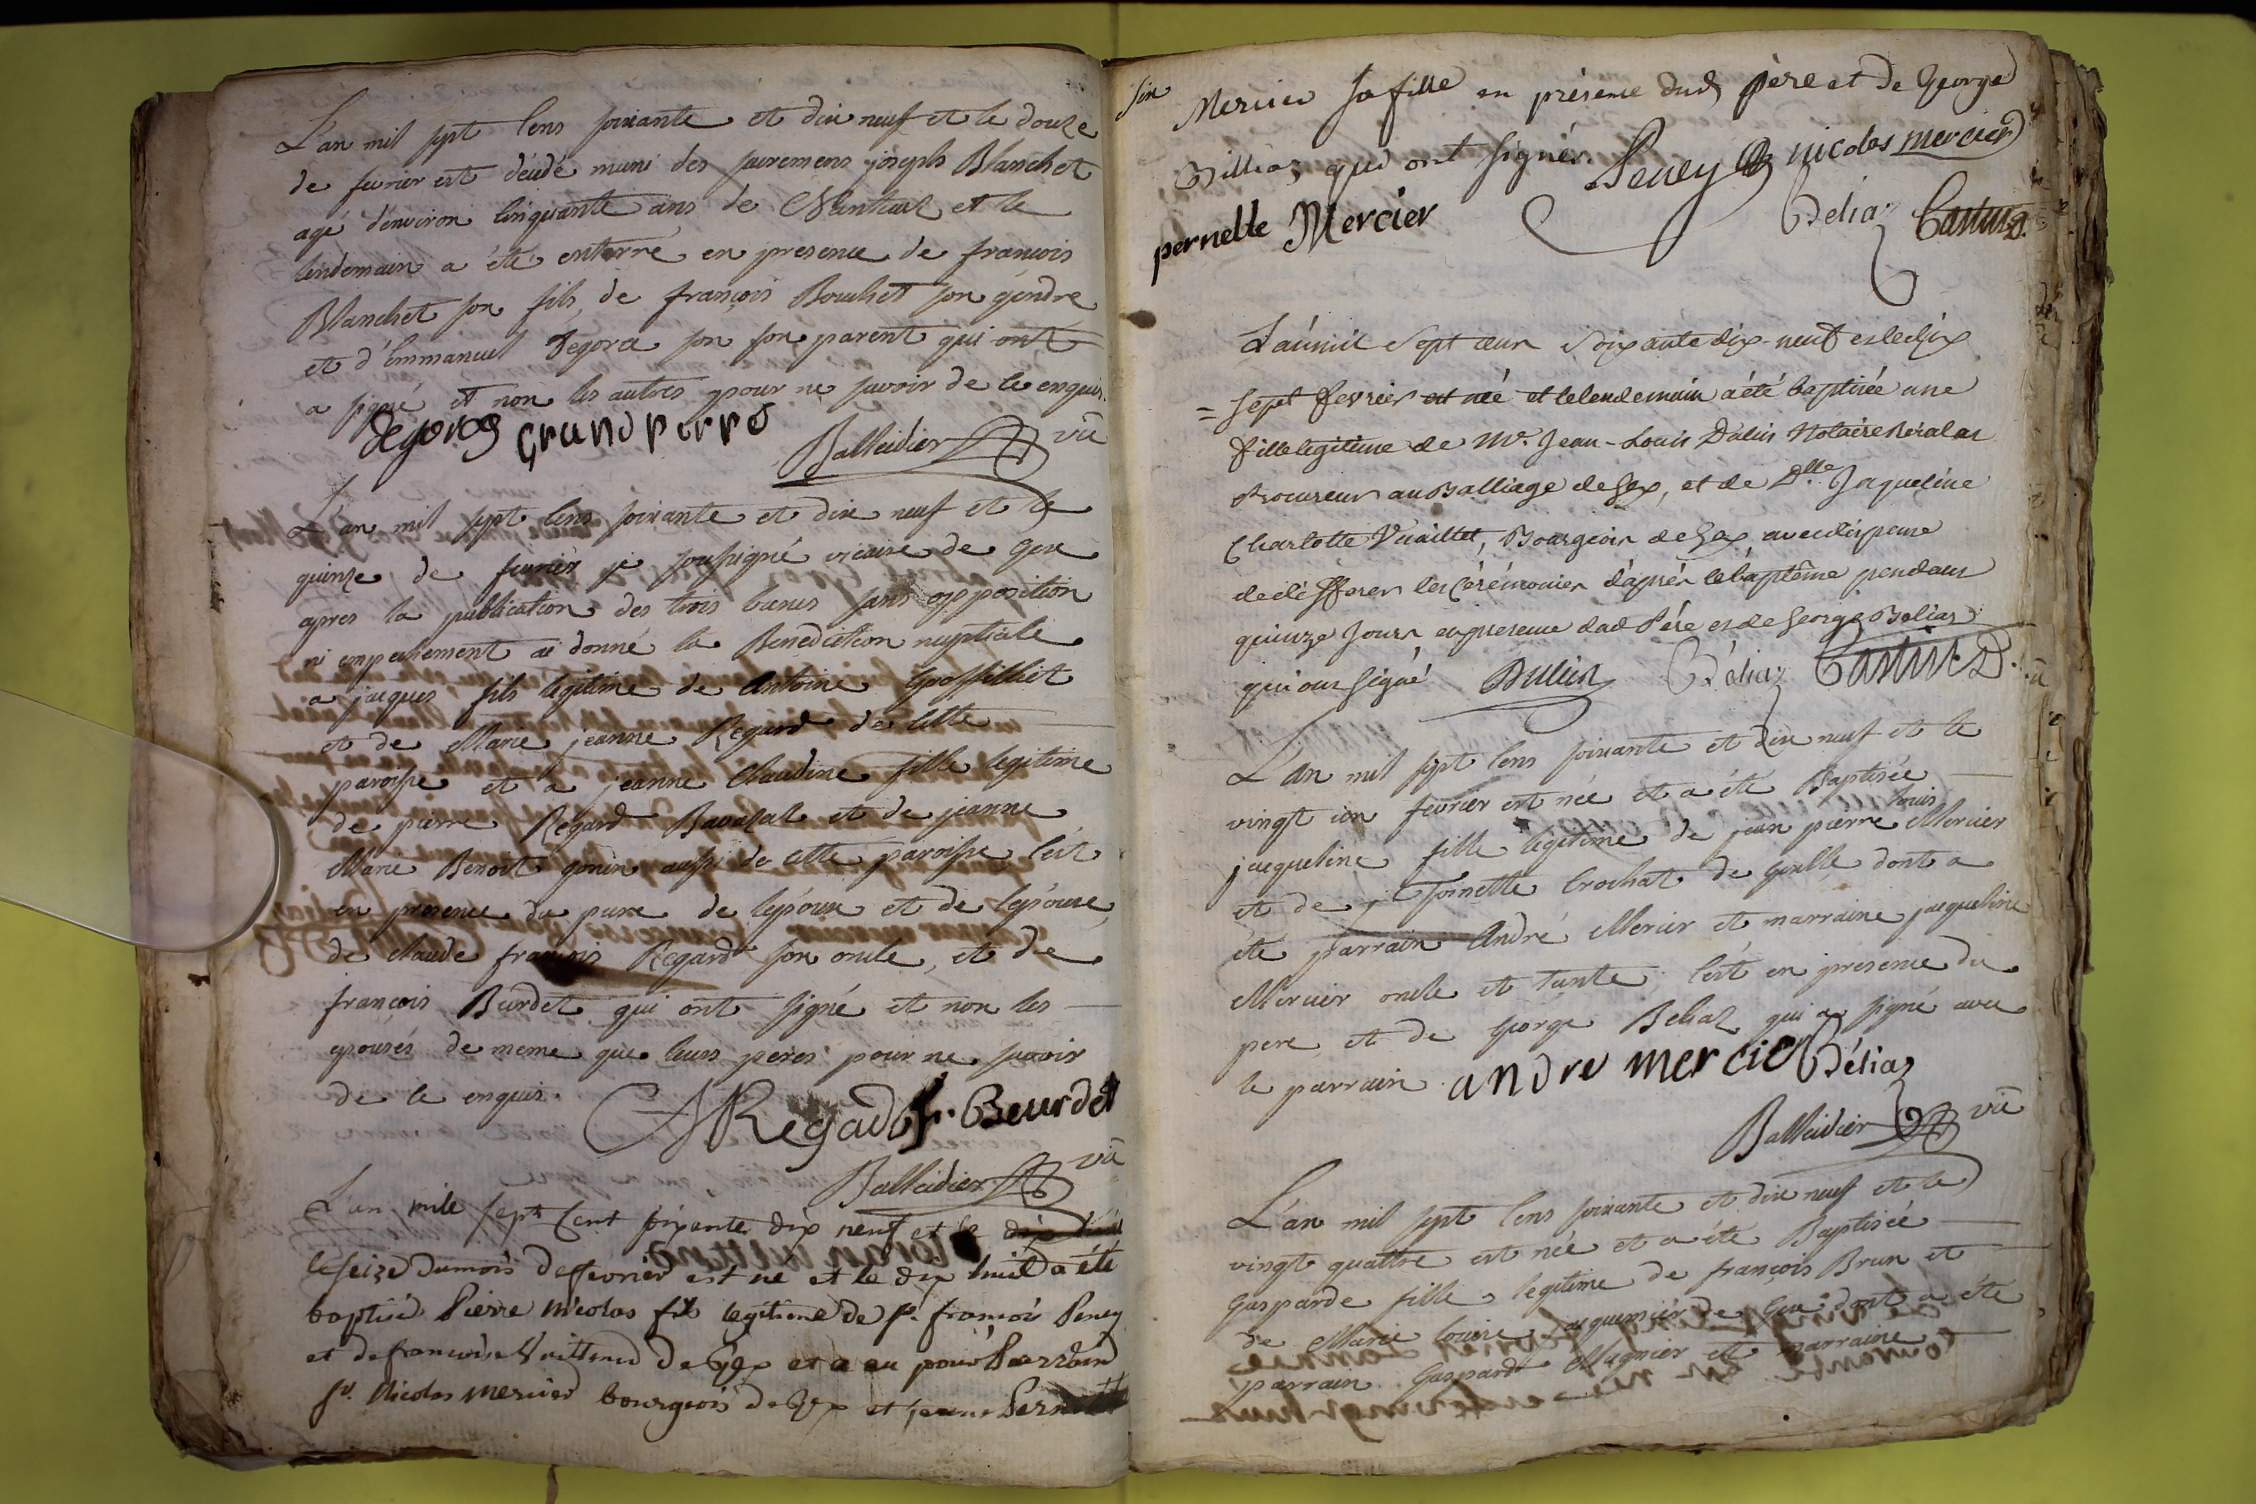 L'an mil sept cens soixante et dix neuf et le douze
de fevrier est décédé muni des sacremens joseph Blanchet
agé d'environ cinquante ans de et le
lendemain a été enterré en presence de françois
Blanchet son fils, de françois Bouchet son gendre
et d'Emmanuel Degora son parent qui ont
a signé et non les autres pour ne savoir de ce enquis.
degoras grand perre
Balleidier vic
L'an mil sept cens soixante et dix neuf et le
quinze de fevrier je soussigné vicaire de Gex
apres la publication des trois bans sans opposition
ni empechement ai donné la Benediction nuptiale
a jacques fils legitime de Antoine Grosfilliet
et de Marie jeanne Regard de cette
paroisse et a jeanne Claudine fille legitime
de pierre Regard Bavozat et de jeanne
Marie Benoit gonin aussi de cette paroisse c'est
en presence du pere de l'epoux et de l'epouse,
de claude françois Regard son oncle, et de
françois Burdet qui ont signé et non les
epousés de meme que leurs peres pour ne savoir
de ce enquis.
Regad f. Beurdet
Balleidier vic
L'an mile sept cent soixente dix neuf et le dix
le seize du mois de fevrier est né et le dix huit a été
baptisé Pierre Nicolas fils legitime de Sr. françois Peney
et de francoise Vuittend de Gex et a eu pour Parrain
Sr. Nicolas Mercier bourgeois de Gex et jeanne Pernette
Mercier sa fille en présence dud père et de George
Billiaz qui ont signés. Peney nicolas mercier
pernelle Mercier Béliaz Castin D.
L'an mil sept cens soixante dix-neuf et le dix
= sept fevrier est née et le lendemain a été baptisée une
fille legitime de Me. Jean-Louis Dulin Notaire Roial et
Procureur au Balliage de Gex, et de Dlle. Jaqueline
Charlotte Vuaillet, Bourgeois de Gex avec dispense
de differer les cérémonies d'après le baptême pendant
quinze jours en presence dud Pére et de George Beliaz
qui ont signé Dullin Béliaz Castin D.
L'An mil sept cens soixante et dix neuf et le
vingt un fevrier est née et a été Baptisée
jacqueline fille legitime de jean pierre louis Mercier
et de Toinette Crochat de Gex dont a
été parrain André Mercier et marraine jacqueline
Mercier oncle et tante, c'est en presence du
pere et de George Beliaz qui a signé avec
le parrain. andre mercie Béliaz
Balleidier vic
L'an mil sept cens soixante et dix neuf et le
vingt quattre est née et a été Baptisée
Gasparde fille legitime de françois Brun et
de Marie louise de Gex dont a été
parrain Gaspard Magnier et marraine